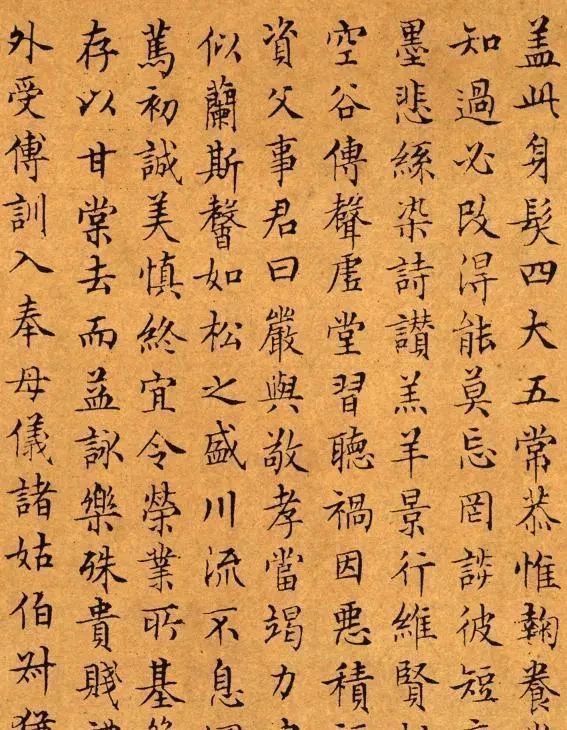 盖此身髮四大五常恭惟鞠養
知過必改得能莫忘罔談彼短
墨悲絲染詩讃羔羊景行維賢
空谷傳聲虚堂習聽禍因悪積
資父事君曰嚴與敬孝當竭力
似蘭斯馨如松之盛川流不息
篤初誠美慎終宜令榮業所基
存以甘棠去而益詠樂殊貴賤
外受傅訓入奉母儀諸姑伯叔猶